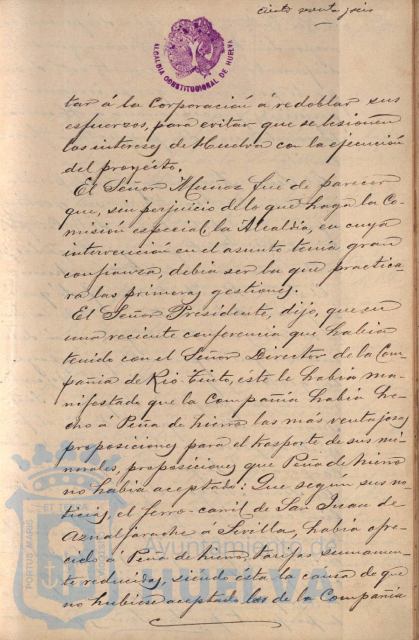 ciento noventa y seis
ALCALDIA CONSTITUCIONAL DE HUELVA
tar á la Corporación á redoblar sus
esfuerzos, para evitar que se lesionen
los intereses de Huelva con la ejecución
del proyecto.
El Señor Muñoz fué de parecer
que, sin perjuicio de lo que haga la Co-
misión especial, la Alcaldía, en cuya
intervención en el asunto tenía gran
confianza, debía ser la que practica-
ra las primeras gestiones.
El Señor Presidente, dijo, que en
una reciente conferencia que había
tenido con el Señor Director de la Com-
pañía de Rio-Tinto, este le había ma-
nifestado que la Compañía había he-
cho á Peña de hierro las más ventajosas
proposiciones para el trasporte de sus mi-
nerales, proposiciones que Peña de hierro
no había aceptado: Que segun sus no-
ticias, el ferro-carril de San Juan de
Aznalfarache á Sevilla, había ofre-
cido á Peña de hierro tarifas sumamen-
te reducidas, siendo ésta la causa de que
no hubiese aceptado las de la Compañía
PORTUS MARIS
Ayuntamiento de
HUELVA